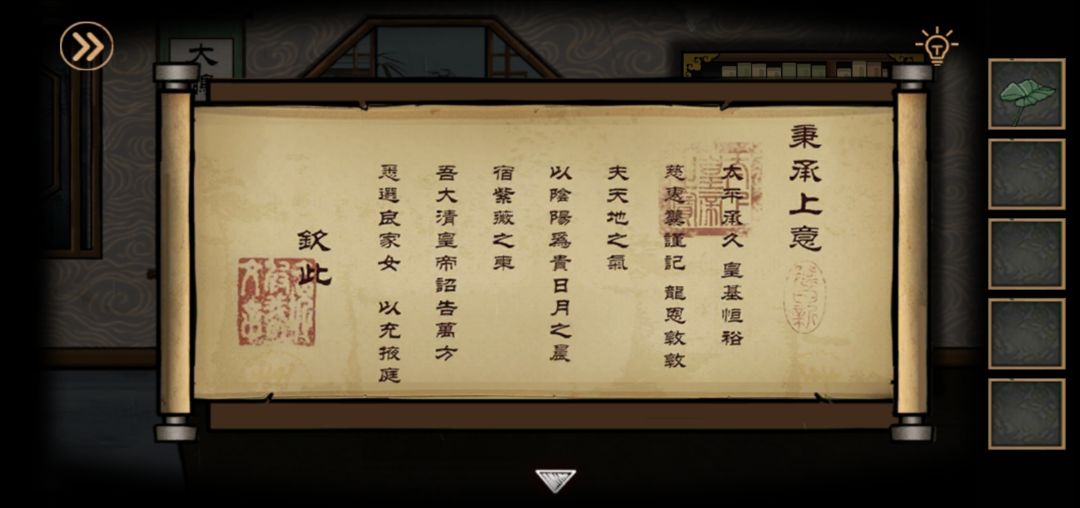 秉承上意
太平承久 皇基恒裕
慈惠龔謹記 龍恩敦敦
夫天地之氣
以陰陽爲貴日月之晨
宿紫薇之東
吾大清皇帝詔告萬方
悉選良家女 以充掖庭
欽此
大